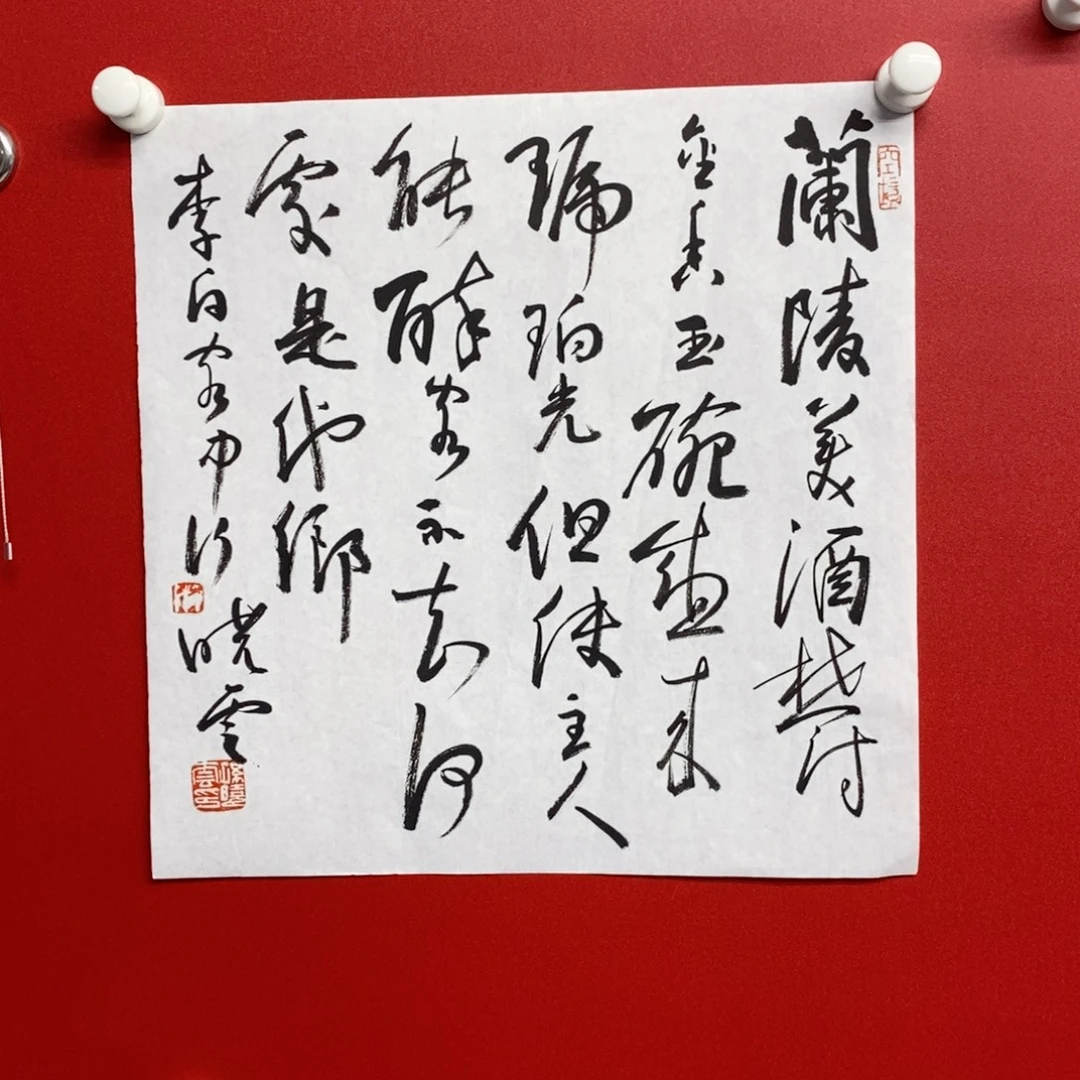 蘭陵美酒鬱
金香玉碗盛來
琥珀光但使主人
能醉客不知何
處是他鄉
李白客中行
曉雲
孫曉雲印